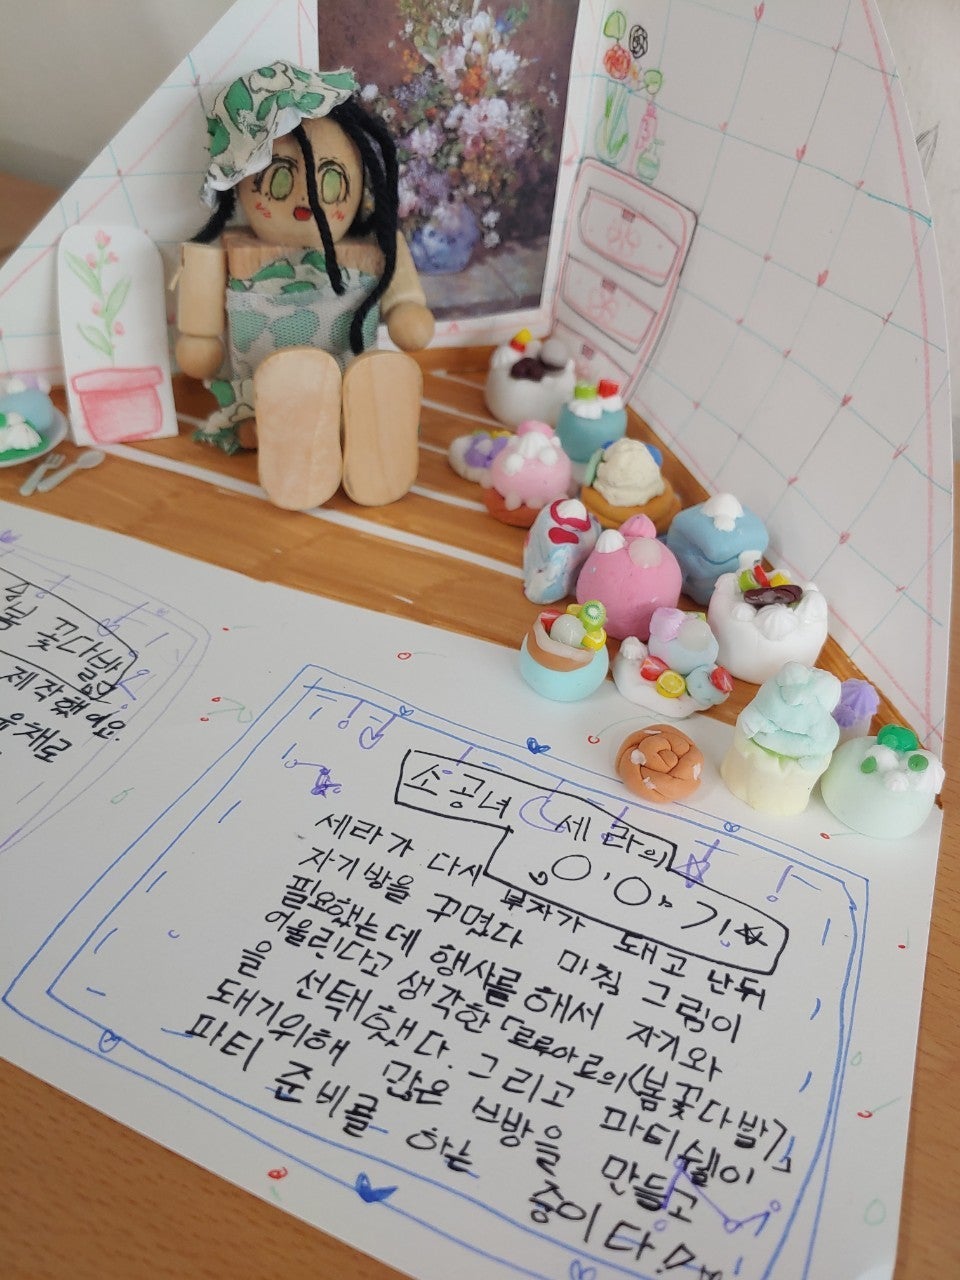 봄 꽃다발
제작했어요.
유채로
소공녀 세라의
이야기
세라가 다시 부자가 돼고 난뒤
자기방을 꾸몄다 마침 그림이
필요했는데 행사를 해서 자기와
어울린다고 생각한 르루아르의(봄꽃다발)
을 선택했다. 그리고 파티쉘이
돼기위해 많은 브방을 만들고
파티 준비를 하는 중이다!